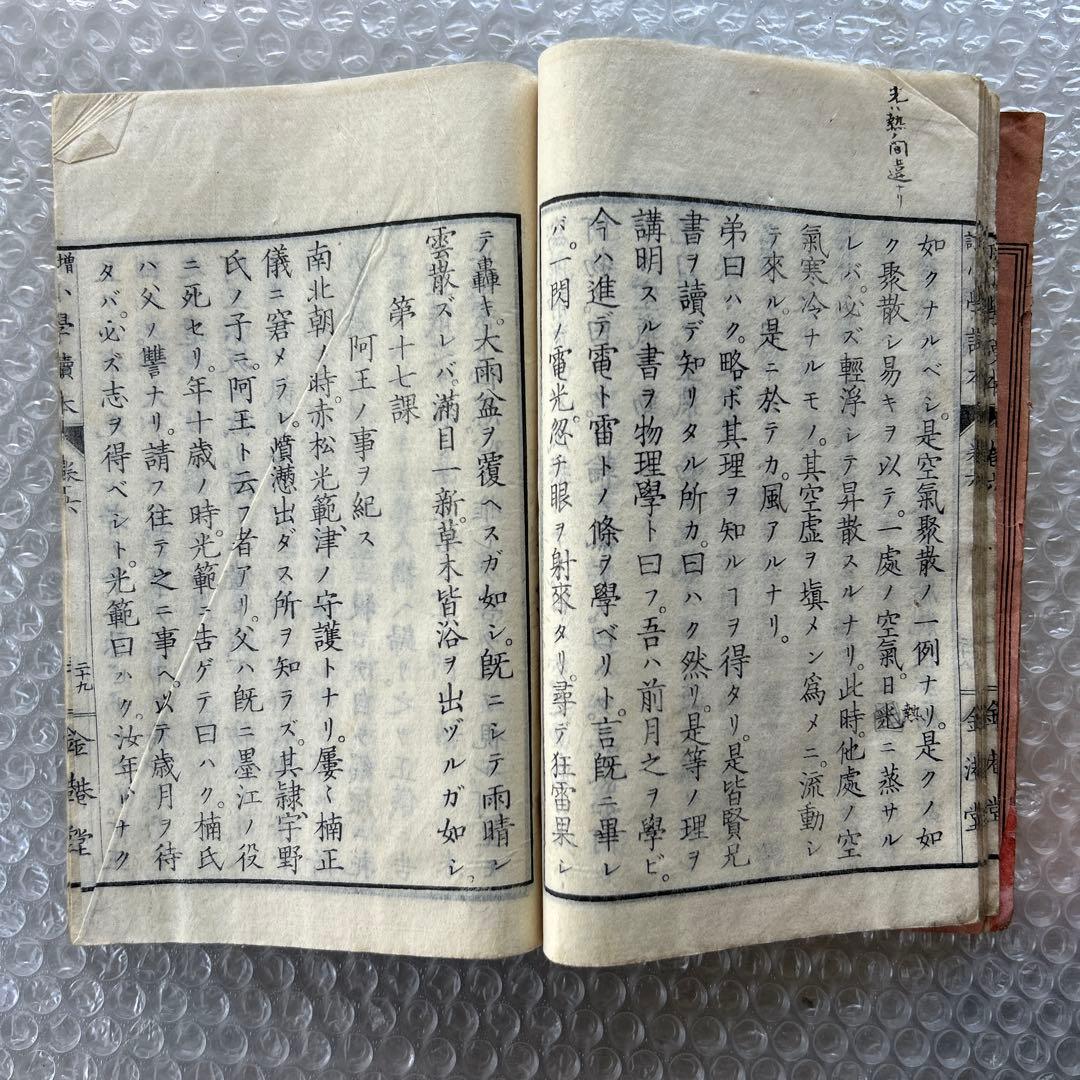 光ハ熱ノ間違ナリ
如クナルベシ。是空氣聚散ノ一例ナリ。是クノ如
ク聚散シ易キヲ以テ。一處ノ空氣。日光ニ蒸サル
熱
レバ。必ズ輕浮シテ昇散スルナリ。此時。他處ノ空
氣寒冷ナルモノ。其空虚ヲ塡メン爲メニ。流動シ
テ來ル。是ニ於テカ。風アルナリ。
弟曰ハク。略ボ其理ヲ知ルヿヲ得タリ。是皆賢兄
書ヲ讀デ知リタル所カ。曰ハク然リ。是等ノ理ヲ
講明スル書ヲ物理學ト曰フ。吾ハ前月之ヲ學ビ。
今ハ進デ電ト雷トノ條ヲ學ベリト。言既ニ畢レ
バ。一閃ノ電光。忽チ眼ヲ射來タリ。尋デ狂雷果シ
テ轟キ。大雨盆ヲ覆ヘスガ如シ。既ニシテ雨晴レ
雲散ズレバ。滿目一新。草木皆浴ヲ出ヅルガ如シ。
第十七課
阿王ノ事ヲ紀ス
南北朝ノ時。赤松光範。津ノ守護トナリ。屢〻楠正
儀ニ窘メラレ。憤懣出ダス所ヲ知ラズ。其隷。宇野
氏ノ子ニ。阿王ト云フ者アリ。父ハ既ニ墨江ノ役
ニ死セリ。年十歳ノ時。光範ニ告ゲテ曰ハク。楠氏
ハ父ノ讐ナリ。請フ往テ之ニ事ヘ。以テ歳月ヲ待
タバ。必ズ志ヲ得ベシト。光範曰ハク。汝年少ナク
增小學讀本 卷六 二十九 金港堂